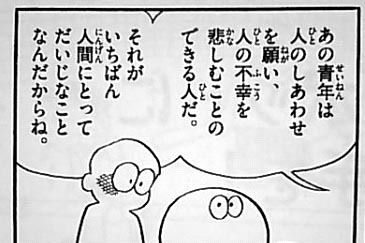 あの青年は
人のしあわせ
を願い、
人の不幸を
悲しむことの
できる人だ。
それが
いちばん
人間にとって
だいじなこと
なんだからね。